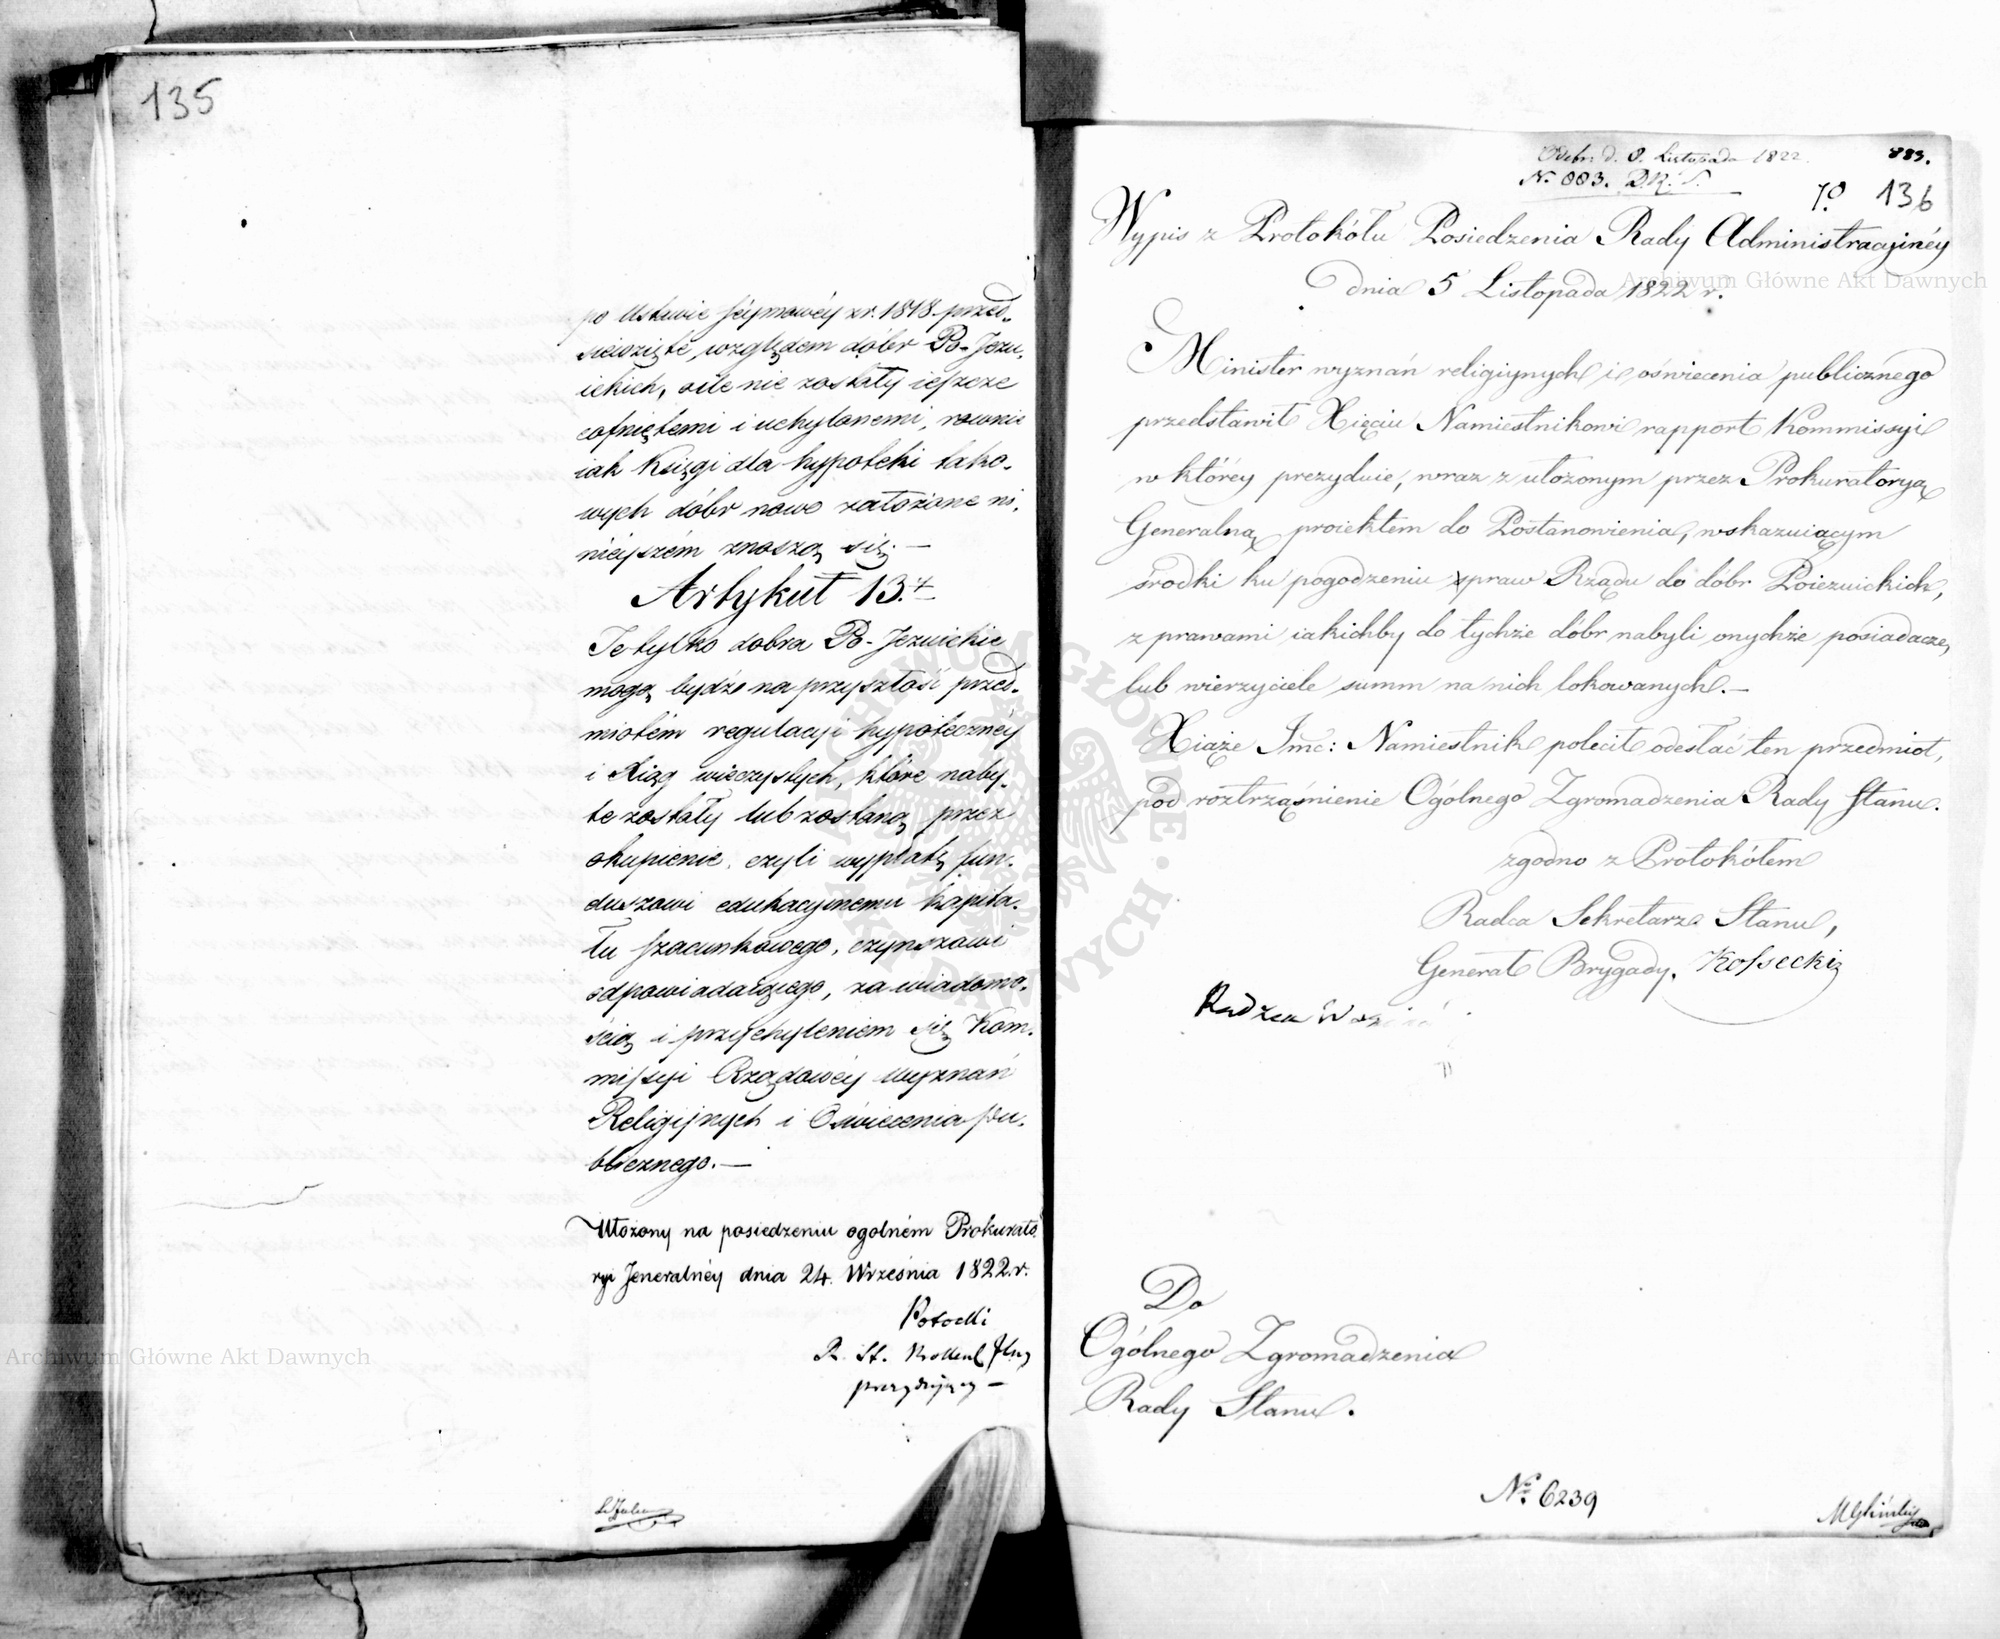 135
po Ustawie Seymowéy zr. 1818 przed-
sięwzięte, względem dóbr Po-Jezu-
ickich, o ile nie zostały ieszcze
cofniętemi i uchylonemi, rownie
iak Księgi dla hypoteki tako-
wych dóbr nowo założone ni-
nieyszém znoszą się. —
Artykuł 13.
Te tylko dobra Po-Jezuickie
mogą bydź na przyszłość przed-
miotém regulacyi hypotecznéy
i Xiąg wieczystych, które naby-
te zostały lub zostaną przez
okupienie, czyli wypłatę fun-
duszowi edukacyinemu kapita-
łu szacunkowego, czynszowi
odpowiadaiącego, za wiadomo-
ścią i przychyleniem się Kom-
missyi Rządowéy wyznań
Religijnych i Oświecenia Pu-
blicznego. —
Ułożony na posiedzeniu ogolném Prokurato-
ryi Jeneralnéy dnia 24. Września 1822. r.
Potocki
R. St.
prezydujący —
Odebr. d. 8. Listopada 1822.
883.
N. 883. D.R.S.
70. 136
Wypis z Protokółu Posiedzenia Rady Administracyinéy
dnia 5 Listopada 1822 r.
Minister wyznań religiynych i oświecenia publicznego
przedstawił Xięciu Namiestnikowi rapport Kommissyi
w któréy prezyduie, wraz z ułożonym przez Prokuratoryą
Generalną proiektem do Postanowienia, wskazuiącym
środki ku pogodzeniu spraw Rządu do dóbr Poiezuickich,
z prawami iakichby do tychże dóbr nabyli onychże posiadacze,
lub wierzyciele summ na nich lokowanych. —
Xiąże Jmć: Namiestnik polecił odesłać ten przedmiot,
pod roztrząśnienie Ogólnego Zgromadzenia Rady Stanu.
zgodno z Protokółem
Radca Sekretarz Stanu,
Generał Brygady, Kossecki
Radzca
Do
Ogólnego Zgromadzenia
Rady Stanu.
No. 6239
MGliński
Archiwum Główne Akt Dawnych
Archiwum Główne Akt Dawnych
ARCHIWUM GŁÓWNE · AKT DAWNYCH ·